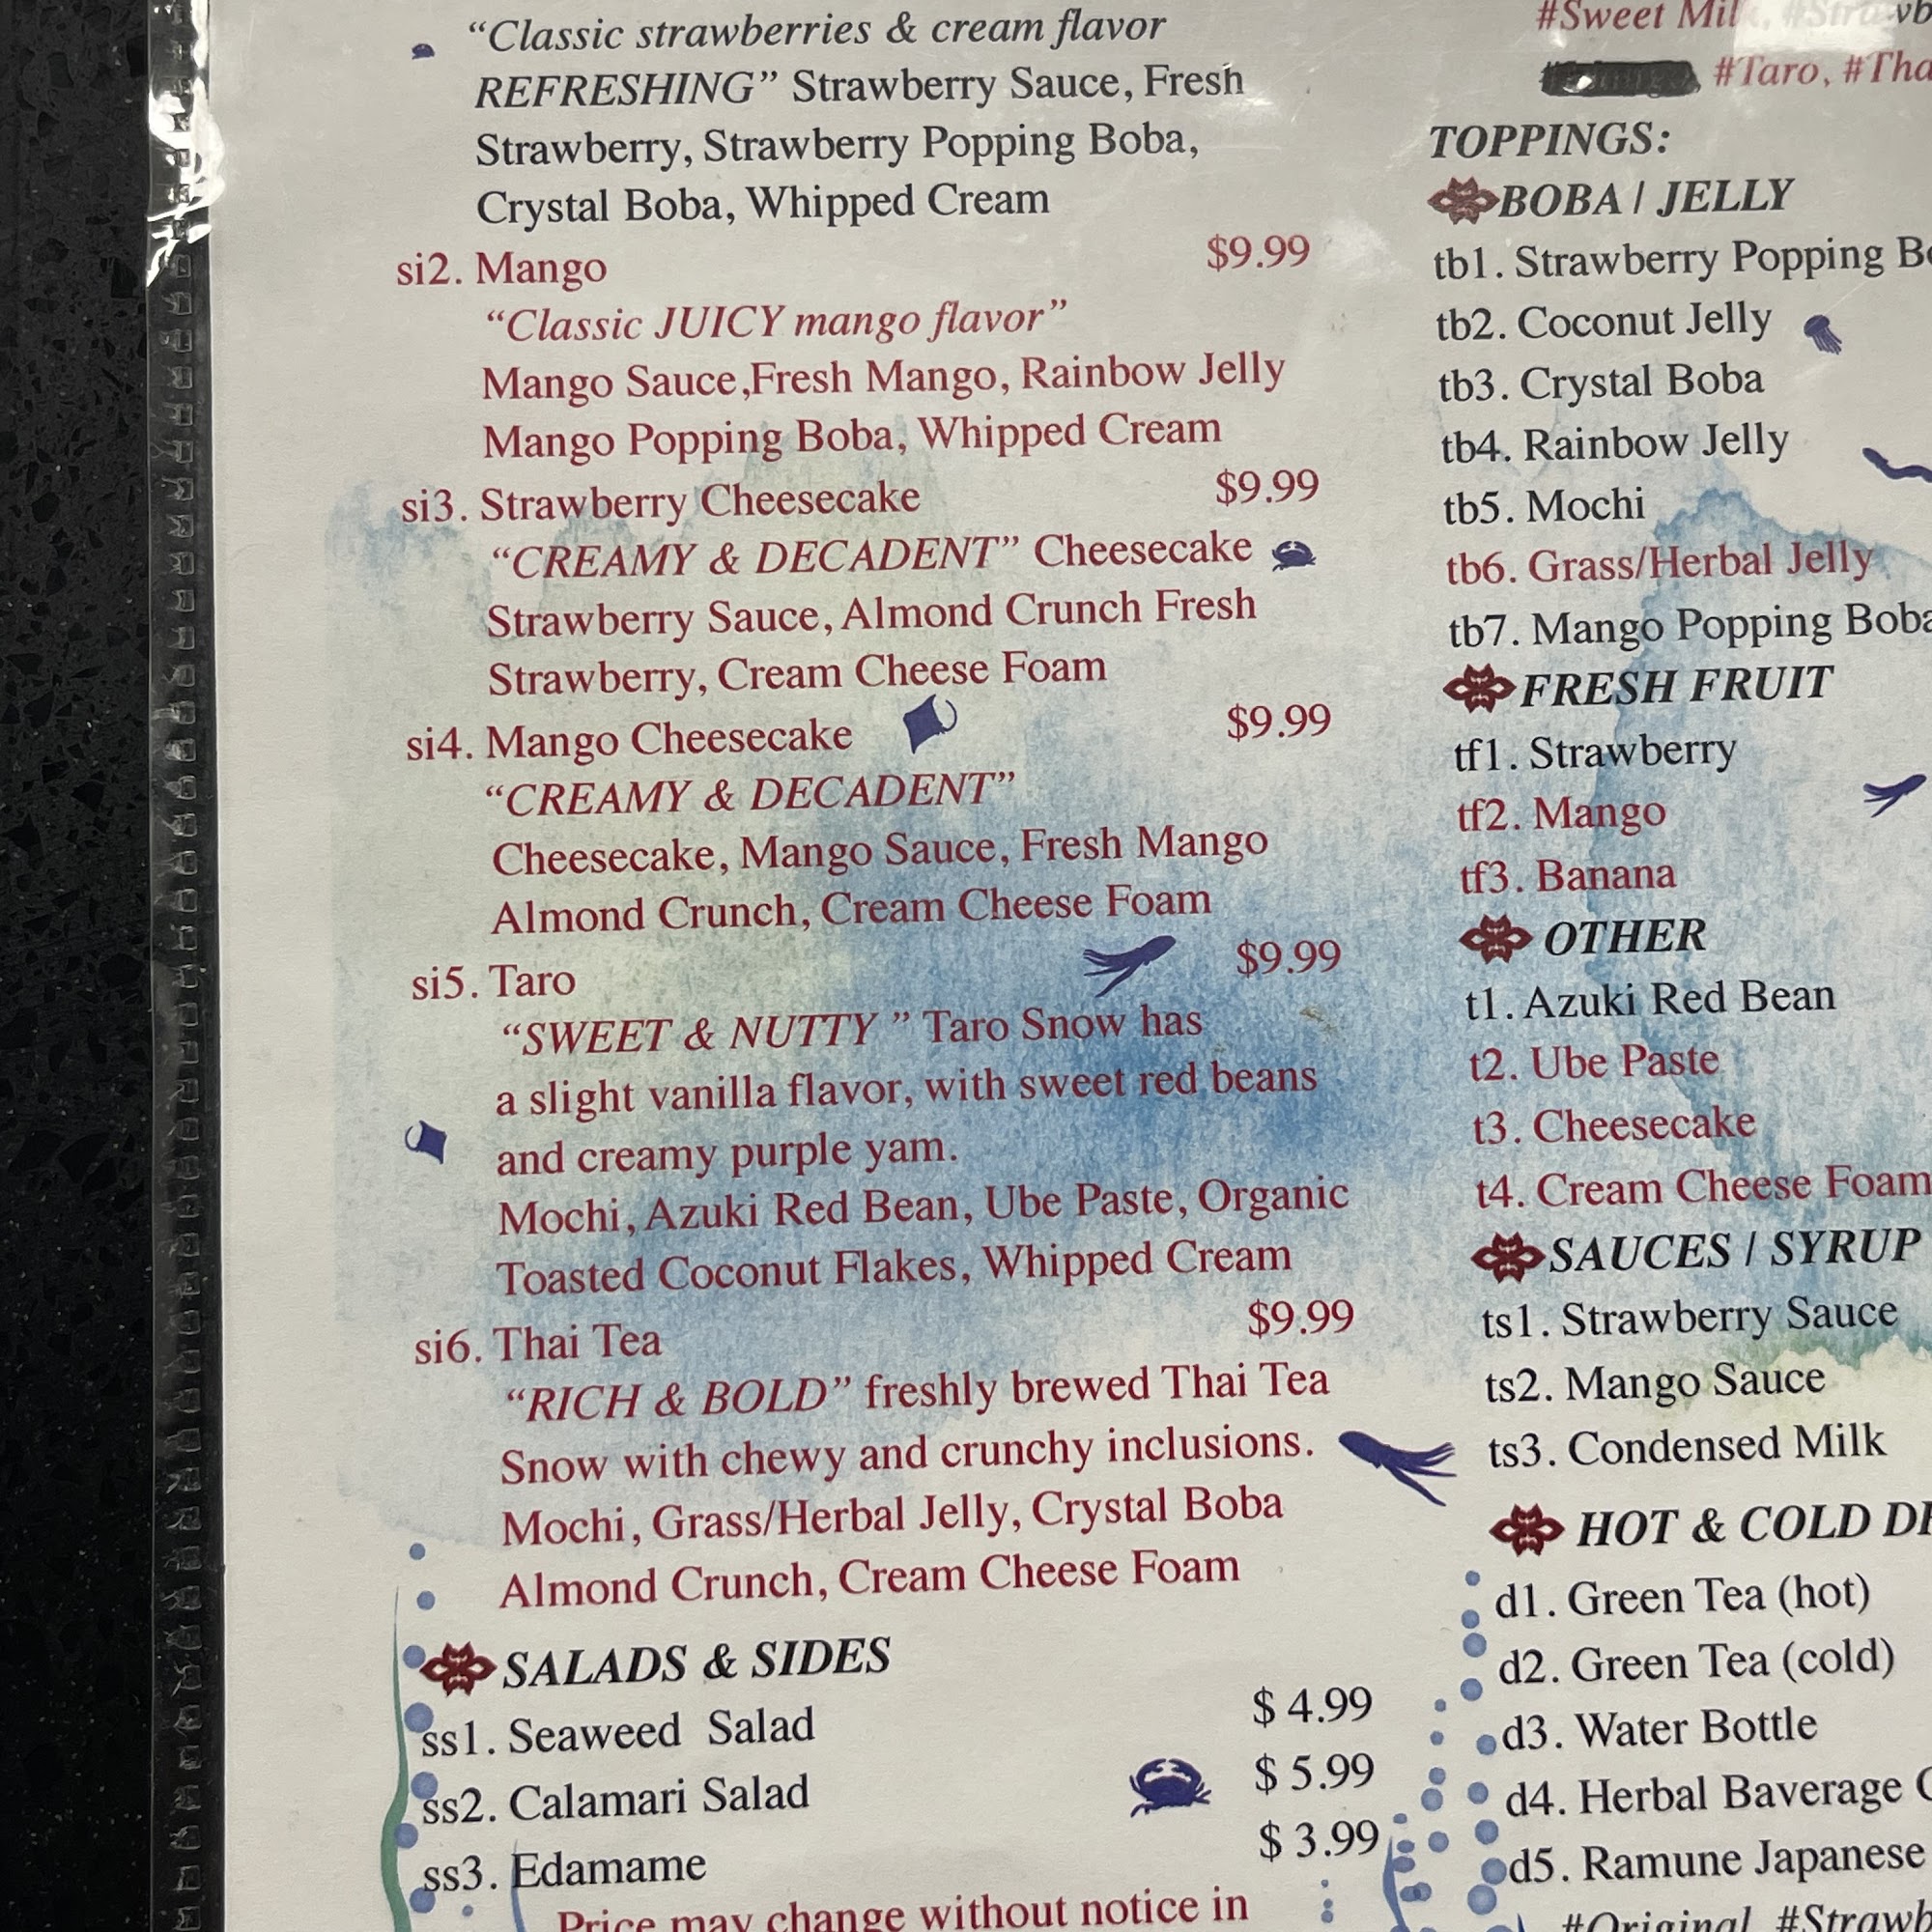 “Classic strawberries & cream flavor
REFRESHING” Strawberry Sauce, Fresh
Strawberry, Strawberry Popping Boba,
Crystal Boba, Whipped Cream
si2. Mango $9.99
“Classic JUICY mango flavor”
Mango Sauce,Fresh Mango, Rainbow Jelly
Mango Popping Boba, Whipped Cream
si3. Strawberry Cheesecake $9.99
“CREAMY & DECADENT” Cheesecake
Strawberry Sauce, Almond Crunch Fresh
Strawberry, Cream Cheese Foam
si4. Mango Cheesecake $9.99
“CREAMY & DECADENT”
Cheesecake, Mango Sauce, Fresh Mango
Almond Crunch, Cream Cheese Foam
si5. Taro $9.99
“SWEET & NUTTY ” Taro Snow has
a slight vanilla flavor, with sweet red beans
and creamy purple yam.
Mochi, Azuki Red Bean, Ube Paste, Organic
Toasted Coconut Flakes, Whipped Cream
si6. Thai Tea $9.99
“RICH & BOLD” freshly brewed Thai Tea
Snow with chewy and crunchy inclusions.
Mochi, Grass/Herbal Jelly, Crystal Boba
Almond Crunch, Cream Cheese Foam
SALADS & SIDES
ss1. Seaweed Salad $ 4.99
ss2. Calamari Salad $ 5.99
ss3. Edamame $ 3.99
Price may change without notice in
#Sweet
#Taro,
TOPPINGS:
BOBA / JELLY
tb1. Strawberry Popping
tb2. Coconut Jelly
tb3. Crystal Boba
tb4. Rainbow Jelly
tb5. Mochi
tb6. Grass/Herbal Jelly
tb7. Mango Popping Boba
FRESH FRUIT
tf1. Strawberry
tf2. Mango
tf3. Banana
OTHER
t1. Azuki Red Bean
t2. Ube Paste
t3. Cheesecake
t4. Cream Cheese Foam
SAUCES / SYRUP
ts1. Strawberry Sauce
ts2. Mango Sauce
ts3. Condensed Milk
HOT & COLD
d1. Green Tea (hot)
d2. Green Tea (cold)
d3. Water Bottle
d4. Herbal Baverage
d5. Ramune Japanese
#Original,